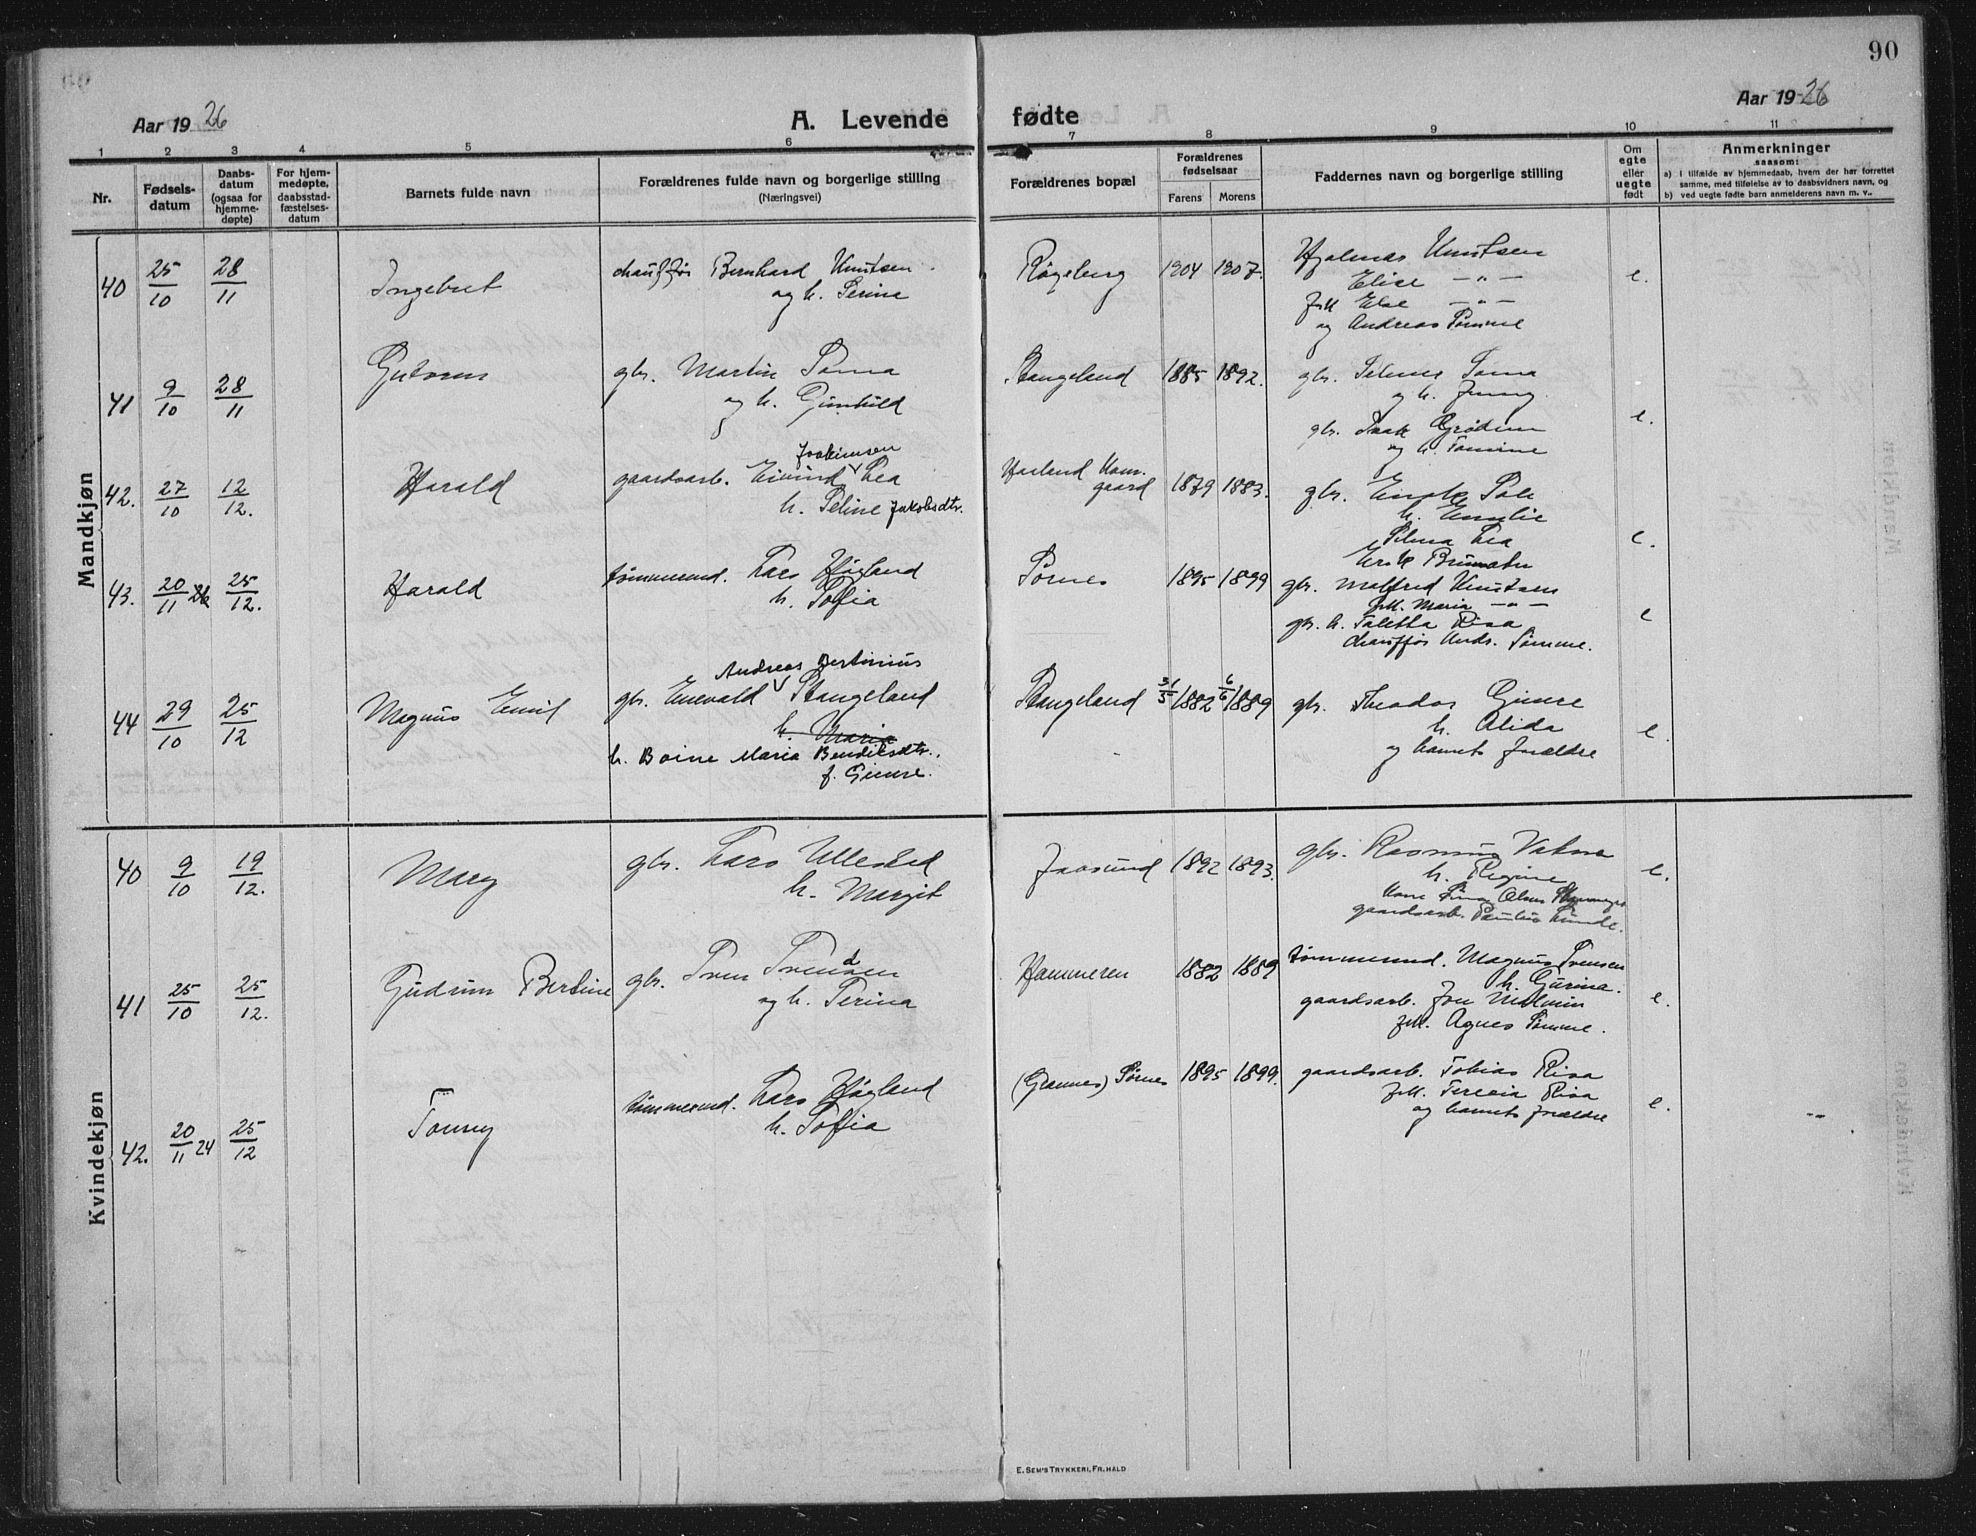 90
Aar 1926
A. Levende fødte
Aar 1926
1 2 3 4 5 6 7 8 9 10 11
Nr.
Fødsels-
datum
Daabs-
datum
(ogsaa for
hjemme-
døpte)
For hjem-
medøpte,
daabsstad-
fæstelses-
datum
Barnets fulde navn
Forældrenes fulde navn og borgerlige stilling
(Næringsvei)
Forældrenes bopæl
Forældrenes
fødselsaar
Farens Morens
Faddernes navn og borgerlige stilling
Om
egte
eller
uegte
født
Anmerkninger
saasom:
a) i tilfælde av hjemmedaab, hvem der har forrettet
samme, med tilføielse av to daabsvidners navn, og
b) ved uegte fødte barn anmelderens navn m. v..
Mandkjøn
40 25/10 28/11 Ingebret
chauffør Bernhard Knutsen.
og h. Serina
Røgeberg 1904 1907.
Hjalmar Knutsen
Elise — " —
frk Else — " —
og Andreas Sømme
e.
41 9/10 28/11 Guttorm
gbr. Martin Soma
og h. Gunhild
Stangeland 1885 1892.
gbr. Selmer Soma
og h. Jenny
gbr. Isak Grødem
og h. Tomine
e.
42. 27/10 12/12. Harald
Joakimsen
gaardsarb. Eivind Lea
h. Seline Jakobsdtr.
Harland Kom.
gaard
1879 1883.
gbr. Enok Sele
h. Emilie
Selma Lea
Erik
e.
43. 20/11 26 25/12. Harald
tømmermd. Lars Høgland
h. Sofia
Sørnes 1895 1899
gbr. Malfred Knutsen
frk. Maria — " —
gbr. h. Taletta Risa
chauffør Andr. Sømme.
e
44 29/10 25/12 Magnus Emil
Andreas Bertinius
gbr. Enevald Stangeland
h. Maria
h. Boine Maria Bendiksdtr.
f. Gimre.
Stangeland 31/5 1882 6/6 1889
gbr. Theodor Gimre
h. Alida
og barnets forældre
e.
Kvindekjøn
40 9/10 19/12. Mary
gbr. Lars Ullestad
h. Margit
Jaasund 1892 1893.
gbr. Rasmus
h. Regine
gaardsarb. Paulus Lunde.
e.
41 25/10 25/12. Gudrun Bertine
gbr. Sven Svendsen
og h. Serina
Hammeren 1882 1889
tømmermd. Magnus Svensen
h. Gurina.
gaardsarb. Jon Malmin
frk. Agnes Sømme.
e.
42. 20/11 24 25/12 Tonny
tømmermd. Lars Høgland
h. Sofia
(Grannes) Sørnes 1895 1899.
gaardsarb. Tobias Risa
frk. Teresia Risa
og barnets forældre
e.
E. SEM'S TRYKKERI, FR.HALD